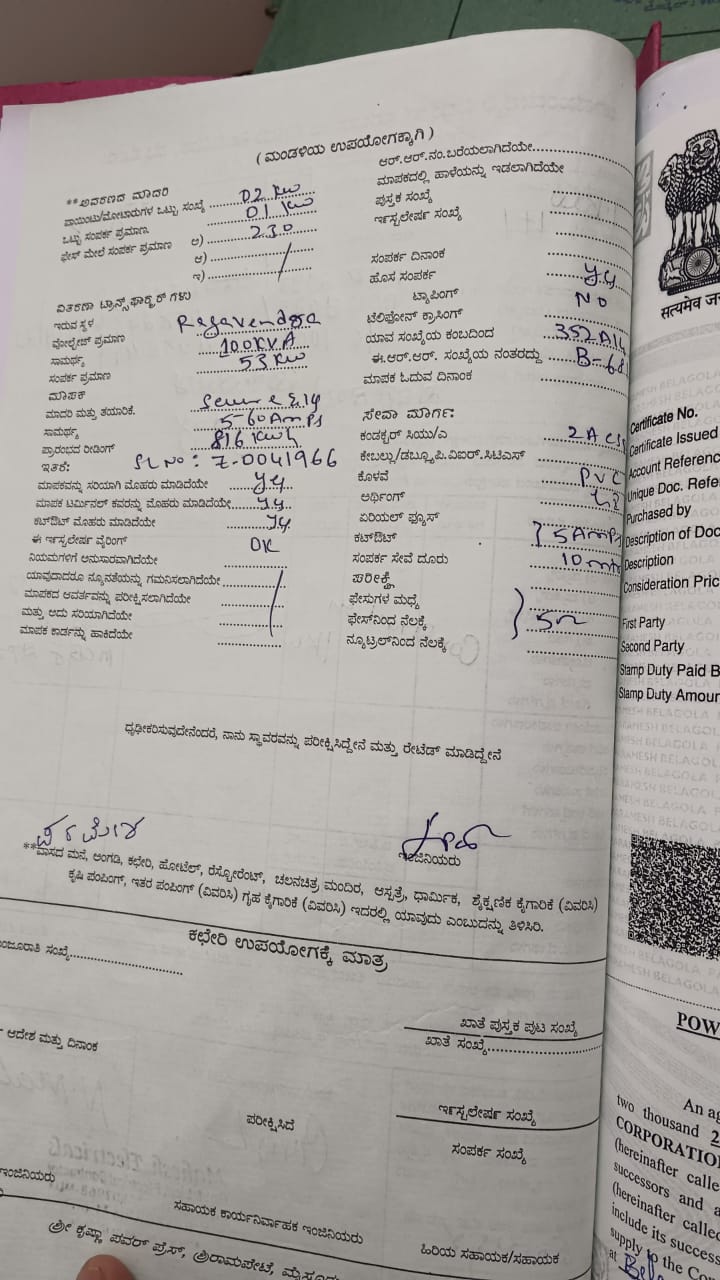 (ಮಂಡಳಿಯ ಉಪಯೋಗಕ್ಕಾಗಿ)
**ಆವರಣದ ಮಾದರಿ
ಪಾಯಿಂಟು/ಮೋಟಾರುಗಳ ಒಟ್ಟು ಸಂಖ್ಯೆ 02 KW
ಒಟ್ಟು ಸಂಪರ್ಕ ಪ್ರಮಾಣ 01 KW
ಫೇಸ್ ಮೇಲೆ ಸಂಪರ್ಕ ಪ್ರಮಾಣ ಅ) 230
ಆ)
ಇ)
ವಿತರಣಾ ಟ್ರಾನ್ಸ್‌ಫಾರ್‍ಮರ್ ಗಳು
ಇರುವ ಸ್ಥಳ Ragavendra
ವೋಲ್ಟೇಜ್ ಪ್ರಮಾಣ 100KVA
ಸಾಮರ್ಥ್ಯ 53 KW
ಸಂಪರ್ಕ ಪ್ರಮಾಣ
ಮಾಪಕ
ಮಾದರಿ ಮತ್ತು ತಯಾರಿಕೆ.
ಸಾಮರ್ಥ್ಯ 5-60 AmPs
ಪ್ರಾರಂಭದ ರೀಡಿಂಗ್ 816 KWh
ಇತರೆ: SL No: Z-0041966
ಮಾಪಕವನ್ನು ಸರಿಯಾಗಿ ಮೊಹರು ಮಾಡಿದೆಯೇ
ಮಾಪಕ ಟರ್ಮಿನಲ್ ಕವರನ್ನು ಮೊಹರು ಮಾಡಿದೆಯೇ
ಕಟ್‌ಔಟ್ ಮೊಹರು ಮಾಡಿದೆಯೇ
ಈ ಇನ್ಸ್ಟಲೇಷನ ವೈರಿಂಗ್ OK
ನಿಯಮಗಳಿಗೆ ಅನುಸಾರವಾಗಿದೆಯೇ
ಯಾವುದಾದರೂ ನ್ಯೂನತೆಯನ್ನು ಗಮನಿಸಲಾಗಿದೆಯೇ
ಮಾಪಕದ ಆವರ್ತವನ್ನು ಪರೀಕ್ಷಿಸಲಾಗಿದೆಯೇ
ಮತ್ತು ಅದು ಸರಿಯಾಗಿದೆಯೇ
ಮಾಪಕ ಕಾರ್ಡನ್ನು ಹಾಕಿದೆಯೇ
ಆರ್.ಆರ್.ನಂ.ಬರೆಯಲಾಗಿದೆಯೇ
ಮಾಪಕದಲ್ಲಿ ಹಾಳೆಯನ್ನು ಇಡಲಾಗಿದೆಯೇ
ಪುಸ್ತಕ ಸಂಖ್ಯೆ
ಇನ್ಸ್ಟಲೇಷನ ಸಂಖ್ಯೆ
ಸಂಪರ್ಕ ದಿನಾಂಕ
ಹೊಸ ಸಂಪರ್ಕ
ಟ್ಯಾಪಿಂಗ್ No
ಟೆಲಿಫೋನ್ ಕ್ರಾಸಿಂಗ್
ಯಾವ ಸಂಖ್ಯೆಯ ಕಂಬದಿಂದ
ಈ.ಆರ್.ಆರ್. ಸಂಖ್ಯೆಯ ನಂತರದ್ದು
ಮಾಪಕ ಓದುವ ದಿನಾಂಕ
ಸೇವಾ ಮಾರ್ಗ:
ಕಂಡಕ್ಟರ್ ಸಿಯು/ಎ
ಕೇಬಲ್ಲು/ಡಬ್ಲ್ಯೂಪಿ.ವಿಐರ್.ಸಿಟಿಎಸ್
ಕೊಳವೆ PVC
ಅರ್ಥಿಂಗ್
ಏರಿಯಲ್ ಫ್ಯೂಸ್
ಕಟ್‌ಔಟ್ } 5 AmPs
ಸಂಪರ್ಕ ಸೇವೆ ದೂರು
ಪರೀಕ್ಷೆ
ಫೇಸುಗಳ ಮಧ್ಯೆ
ಫೇಸ್‌ನಿಂದ ನೆಲಕ್ಕೆ
ನ್ಯೂಟ್ರಲ್‌ನಿಂದ ನೆಲಕ್ಕೆ
ಧೃಢೀಕರಿಸುವುದೇನೆಂದರೆ, ನಾನು ಸ್ಥಾವರವನ್ನು ಪರೀಕ್ಷಿಸಿದ್ದೇನೆ ಮತ್ತು ರೇಟೆಡ್ ಮಾಡಿದ್ದೇನೆ
ಇಂಜಿನಿಯರು
**ವಾಸದ ಮನೆ, ಅಂಗಡಿ, ಕಛೇರಿ, ಹೋಟೆಲ್, ರೆಸ್ಟೋರೆಂಟ್, ಚಲನಚಿತ್ರ ಮಂದಿರ, ಆಸ್ಪತ್ರೆ, ಧಾರ್ಮಿಕ, ಶೈಕ್ಷಣಿಕ ಕೈಗಾರಿಕೆ (ವಿವರಿಸಿ)
ಕೃಷಿ ಪಂಪಿಂಗ್, ಇತರ ಪಂಪಿಂಗ್ (ವಿವರಿಸಿ) ಗೃಹ ಕೈಗಾರಿಕೆ (ವಿವರಿಸಿ) ಇದರಲ್ಲಿ ಯಾವುದು ಎಂಬುದನ್ನು ತಿಳಿಸಿರಿ.
ಕಛೇರಿ ಉಪಯೋಗಕ್ಕೆ ಮಾತ್ರ
ಂಜೂರಾತಿ ಸಂಖ್ಯೆ
ಖಾತೆ ಪುಸ್ತಕ ಪುಟ ಸಂಖ್ಯೆ
ಖಾತೆ ಸಂಖ್ಯೆ
ಆದೇಶ ಮತ್ತು ದಿನಾಂಕ
ಪರೀಕ್ಷಿಸಿದೆ
ಇನ್ಸ್ಟಲೇಷನ ಸಂಖ್ಯೆ
ಸಂಪರ್ಕ ಸಂಖ್ಯೆ
ಇಂಜಿನಿಯರು
ಸಹಾಯಕ ಕಾರ್ಯನಿರ್ವಾಹಕ ಇಂಜಿನಿಯರು
ಹಿರಿಯ ಸಹಾಯಕ/ಸಹಾಯಕ
ಶ್ರೀ ಕೃಷ್ಣಾ ಪವರ್ ಪ್ರೆಸ್, ಶ್ರೀರಾಮಪೇಟೆ, ಮೈಸೂರು
ಸತ್ಯಮೇವ ಜಯ
Certificate No.
Certificate Issued
Account Referenc
Unique Doc. Refe
Purchased by
Description of Doc
Description
Consideration Pric
First Party
Second Party
Stamp Duty Paid B
Stamp Duty Amour
POW
An ag
two thousand 2
CORPORATION
(hereinafter calle
successors and a
(hereinafter called
include its success
supply to the Co
at Bel